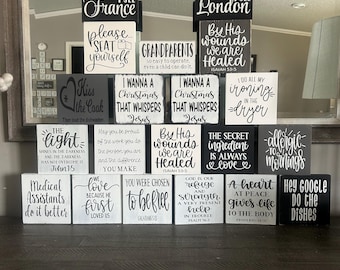 France
London
please
SEAT
yourself
GRANDPARENTS
By His
wounds
we are
Healed
ISAIAH 53:5
Kiss
the Cook
I WANNA A
Christmas
THAT WHISPERS
Jesus
I WANNA A
Christmas
THAT WHISPERS
Jesus
I DO ALL MY
ironing
IN THE
dryer
THE
light
SHINES IN THE DARKNESS
John 1:5
YOU MAKE
By His
wounds
we are
Healed
ISAIAH 53:5
THE SECRET
ingredient
IS ALWAYS
love
allergic
TO
mornings
Medical
Assistants
do it better
WE
love
BECAUSE HE
first
LOVED US
YOU WERE CHOSEN
to be
free
GOD IS OUR
refuge
AND
strength
A VERY PRESENT
help
IN TROUBLE
A heart
AT PEACE
gives life
TO THE BODY
HEY GOOGLE
DO THE
DISHES